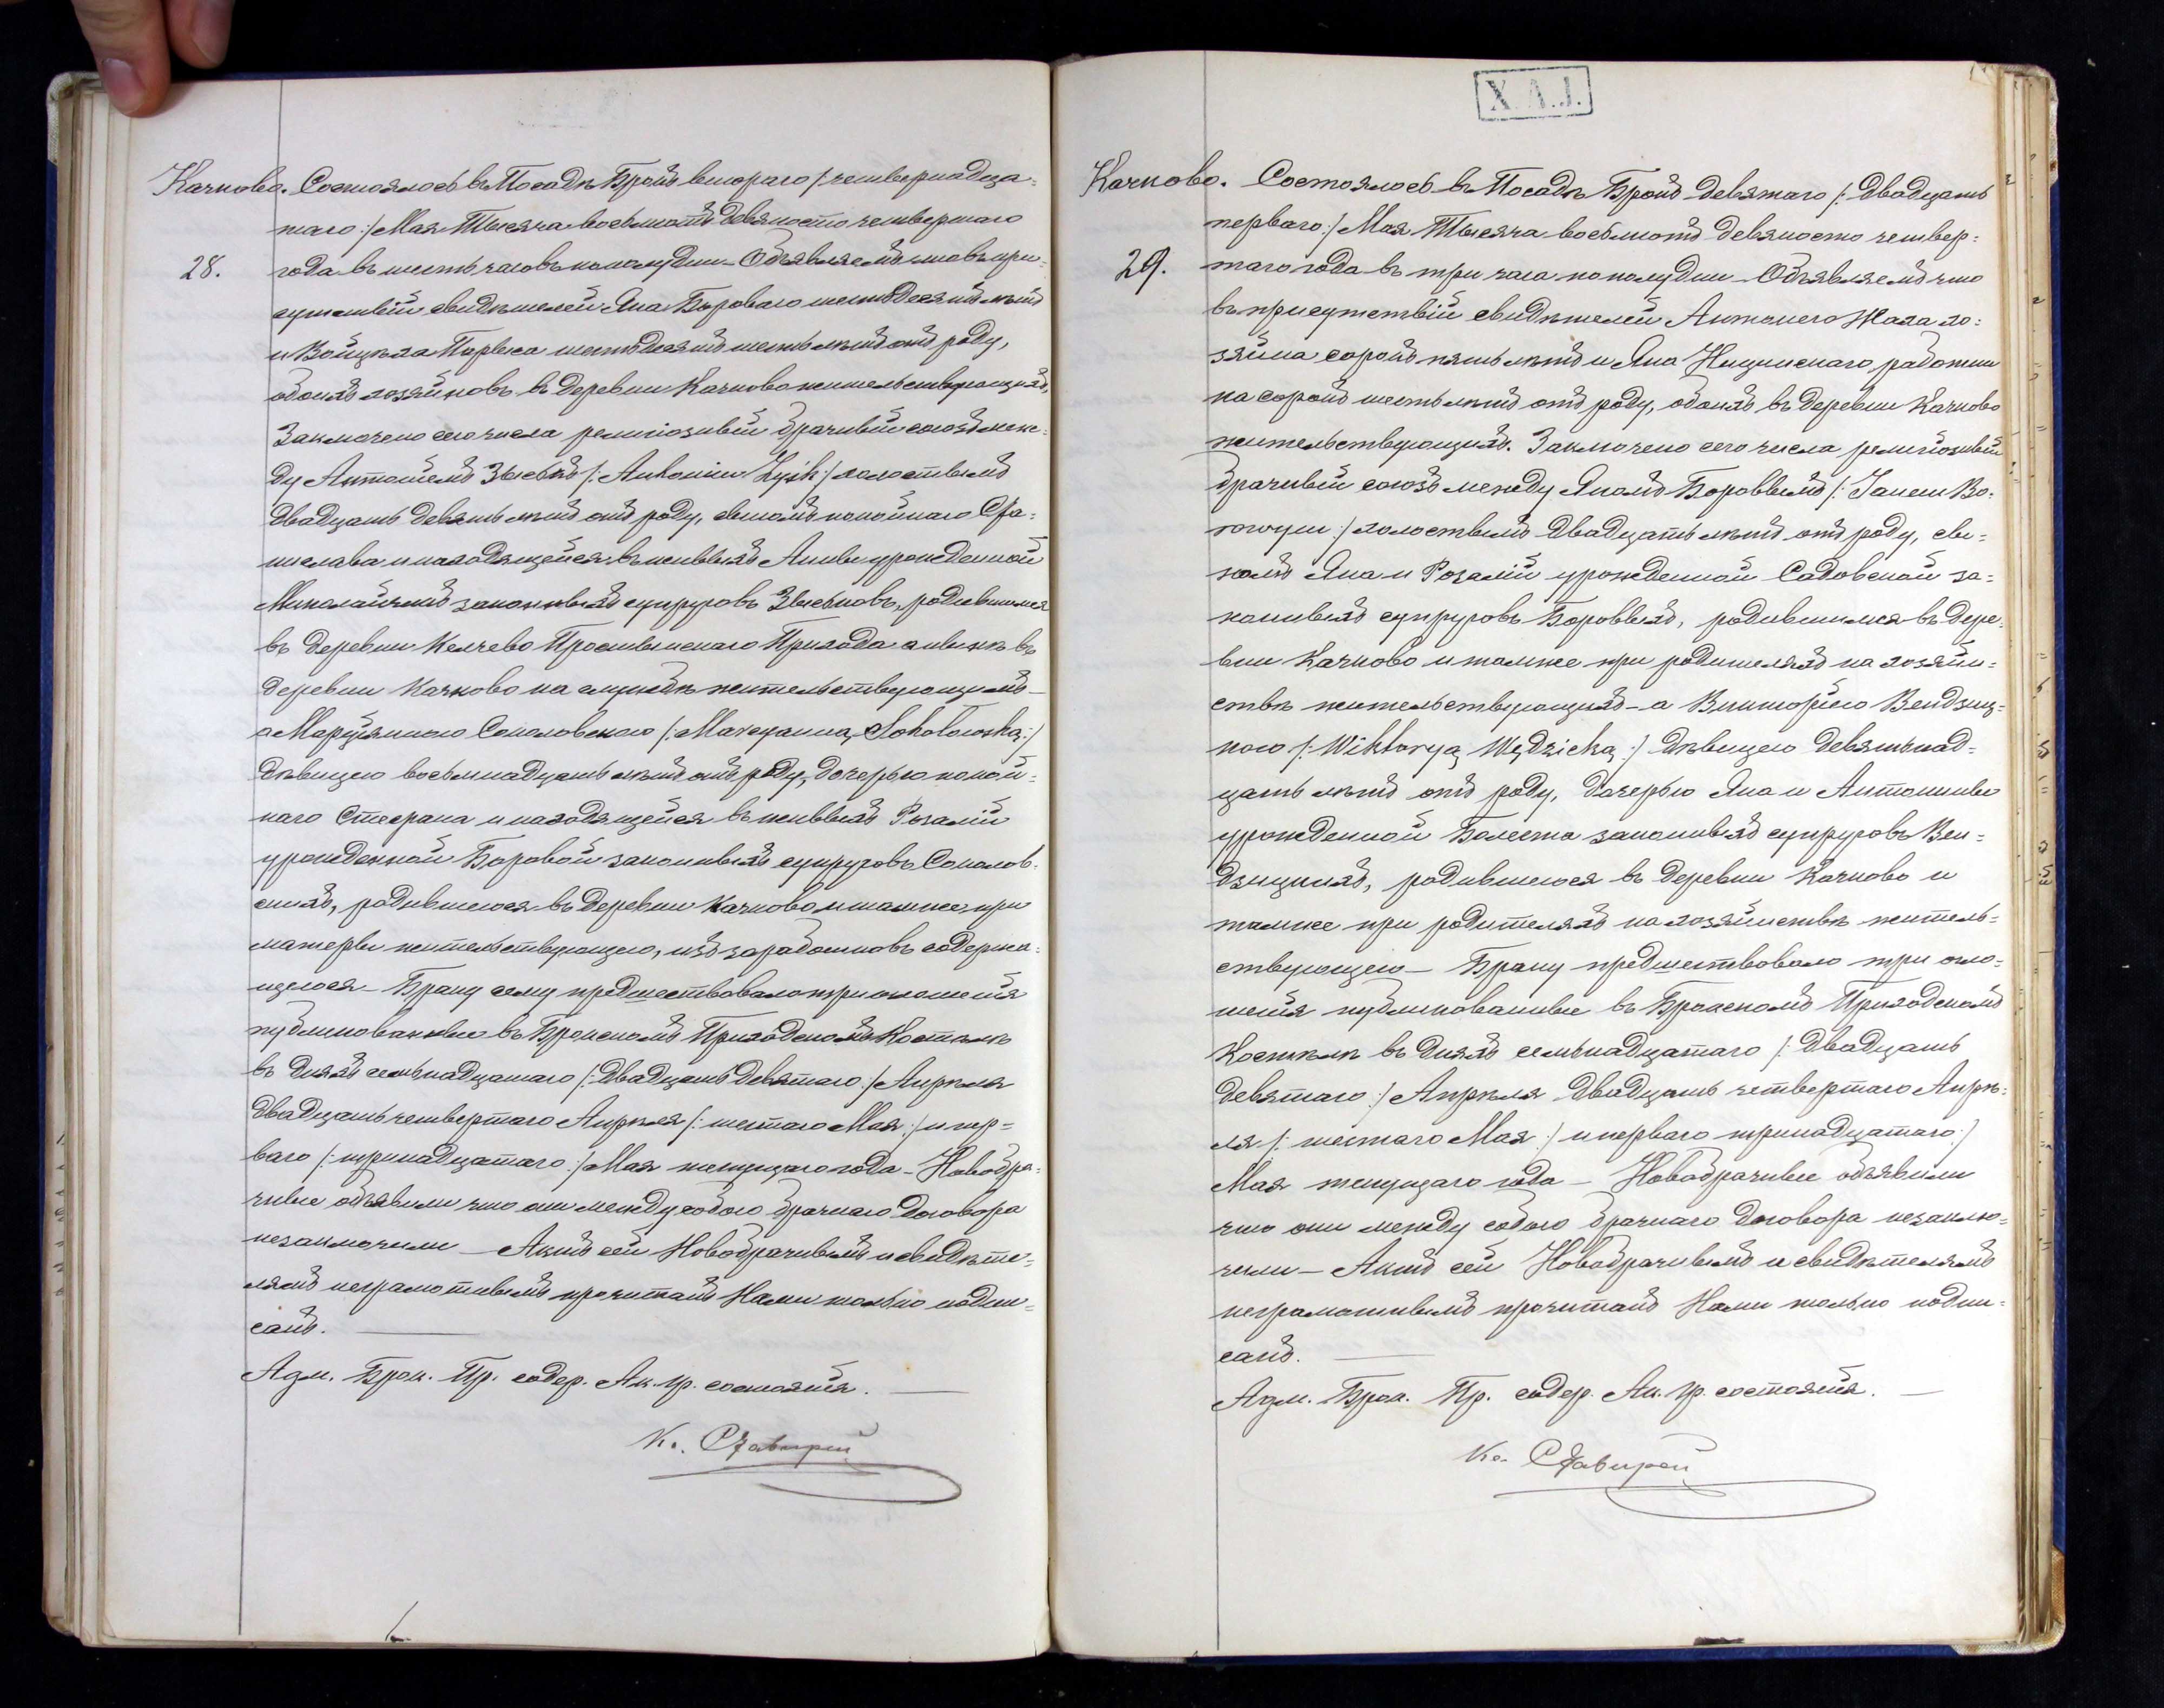 Качково. Состоялось въ Посадѣ Брокъ втораго /: четвернадца=
таго :/ Мая Тысяча восемьсотъ девяносто четвертаго
28. года въ шесть часовъ пополудни – Объявляемъ что въ при=
сутствіи свидѣтелей Яна Бороваго шестьдесятъ лѣтъ
и Войцѣха шестьдесятъ шесть лѣтъ отъ роду,
обоихъ хозяиновъ въ деревни Качково жительствующихъ,
Заключено сего числа религіозный брачный союзъ меж=
ду Антонiемъ Зыськъ /: Antonim Zyśk :/ холостымъ
двадцать девять лѣтъ отъ роду, сыномъ покойнаго Ста=
нислава и находящейся въ живыхъ Анны урожденной
законныхъ супруговъ Зыськовъ, родившимся
въ деревни Келчево Простынскаго Прихода а нынѣ въ
деревни Качково на службѣ жительствующимъ –
а Марціянною Соколовскою /: Marcyanną Sokołowską :/
дѣвицею восемнадцать лѣтъ отъ роду, дочерью покой=
наго Стефана и находящейся въ живыхъ Розаліи
урожденной Боровой законныхъ супруговъ Соколов=
скихъ, родившеюся въ деревни Качково и тамже при
матери жительствующею, изъ заработковъ содержа=
щеюся – Браку сему предшествовало три оглошенія
публикованные въ Брокскомъ Приходскомъ Костелѣ
въ дняхъ семьнадцатаго /: двадцать девятаго :/ Апрѣля
двадцать четвертаго Апрѣля /: шестаго Мая :/ и пер=
ваго /: тринадцатаго :/ Мая текущаго года – Новобра=
чные объявили что они между собою брачнаго договора
незаключили – Актъ сей Новобрачнымъ и свидѣте=
лямъ неграмотнымъ прочитанъ Нами только подпи=
санъ.
Адм. Брок. Пр. содер. Ак. гр. состоянія.
К.
X. A. J.
Качково. Состоялось въ Посадѣ Брокъ девятаго /: двадцать
перваго :/ Мая Тысяча восемьсотъ девяносто четвер=
29. таго года въ три часа пополудни – Объявляемъ что
въ присутствіи свидѣтелей Антонего Жаха хо=
зяина сорокъ пять лѣтъ и Яна работни
ка сорокъ шесть лѣтъ отъ роду, обоихъ въ деревни Качково
жительствующихъ. Заключено сего числа религіозный
брачный союзъ между Яномъ Боровымъ /: Janem Bo=
rowym :/ холостымъ двадцать лѣтъ отъ роду, сы=
номъ Яна и Розаліи урожденной Садовской за=
конныхъ супруговъ Боровыхъ, родившимся въ дере=
вни Качково и тамже при родителяхъ на хозяй=
ствѣ жительствующихъ – а Викторіею Вендзиц=
кою /: Wiktoryą Wędzicką :/ дѣвицею девятьнад=
цать лѣтъ отъ роду, дочерью Яна и Антонины
урожденной Болеста законныхъ супруговъ Вен=
дзицкихъ, родившеюся въ деревни Качково и
тамже при родителяхъ на хозяйствѣ житель=
ствующею – Браку предшествовало три огло=
шенія публикованные въ Брокскомъ Приходскомъ
Костелѣ въ дняхъ семьнадцатаго /: двадцать
девятаго :/ Апрѣля двадцать четвертаго Апрѣ=
ля /: шестаго Мая :/ и перваго тринадцатаго :/
Мая текущаго года – Новобрачные объявили
что они между собою брачнаго договора незаклю=
чили – Актъ сей Новобрачнымъ и свидѣтелямъ
неграмотнымъ прочитанъ Нами только подпи=
санъ.
Адм. Брок. Пр. содер. Ак. гр. состоянія.
К.